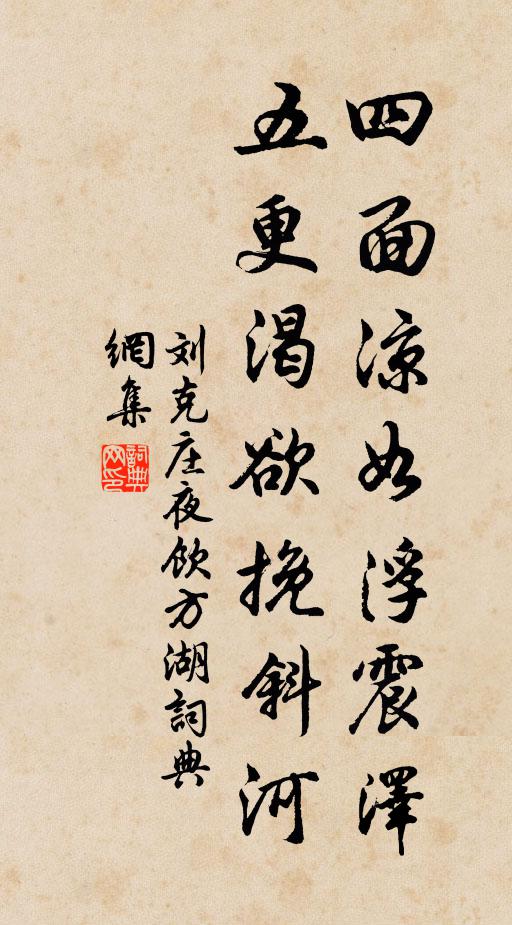 四面凉如浮震澤
五更渴欲挽斜河
刘克庄夜飲方湖詞典
網集
詞典網印